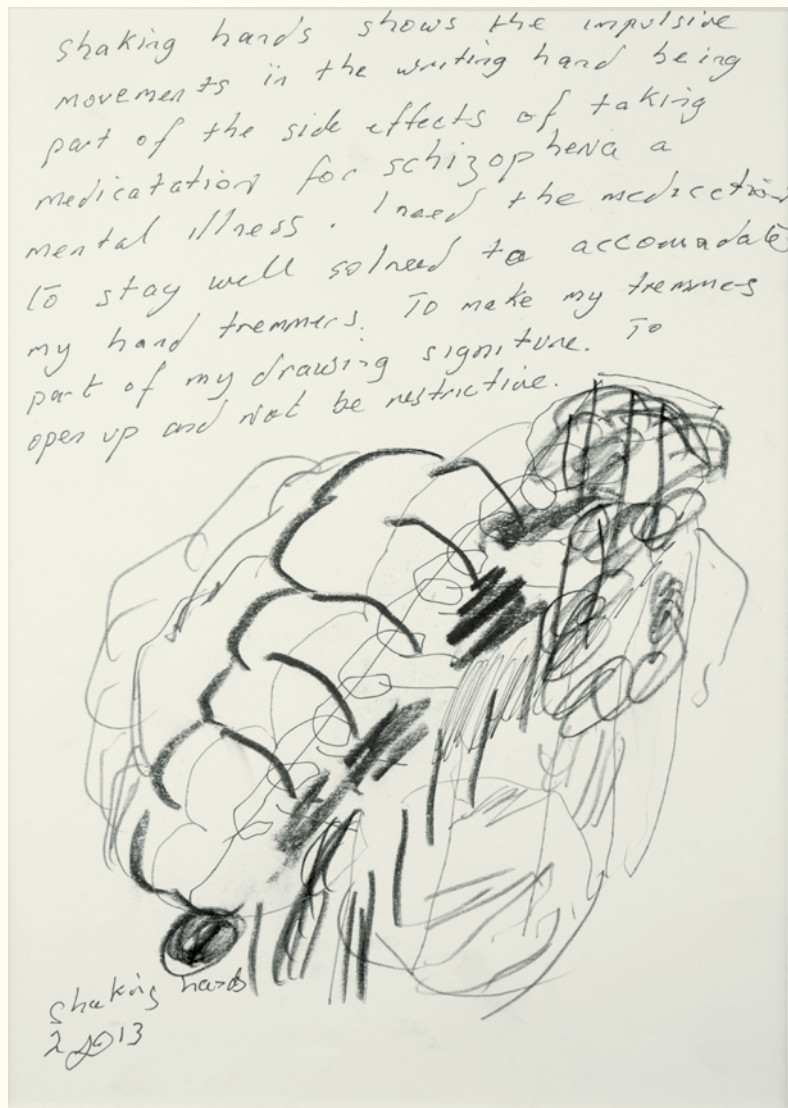 Shaking hands shows the impulsive
movements in the writing hand being
part of the side effects of taking
medicatation for schizophenia a
mental illness. I need the medication
to stay well so I need to accomadate
my hand tremmers. To make my tremmers
part of my drawing signiture. To
open up and not be restrictive.
Shaking hands
2013